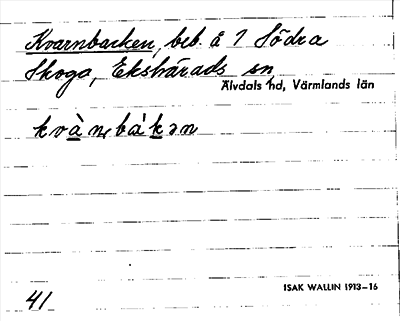 Kvarnbacken, beb. å 7 Södra
Skoga, Ekshärads sn,
Älvdals hd, Värmlands län
kvànbàkən
ISAK WALLIN 1913–16
41